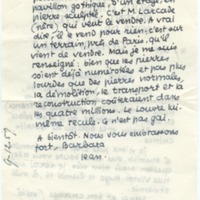 pavillon gothique, d'un étage, en
pierre sculptée. C'est M. Lacaze
(père) qui veut le vendre. A vrai
dire, il le vend pour rien. c'est sur
un terrain, près de Paris, qu'il
vient de vendre. Mais je me suis
renseigné; bien que les pierres
soient déjà numérotées et pas plus
lourdes que des pierres normales,
la démolition, le transport et la
reconstruction coûteraient dans
les quatre millions. Le Louvre lui-
même recule. ce n'est pas gai.
A bientôt. Nous vous embrassons
fort, Barbara
Jean.